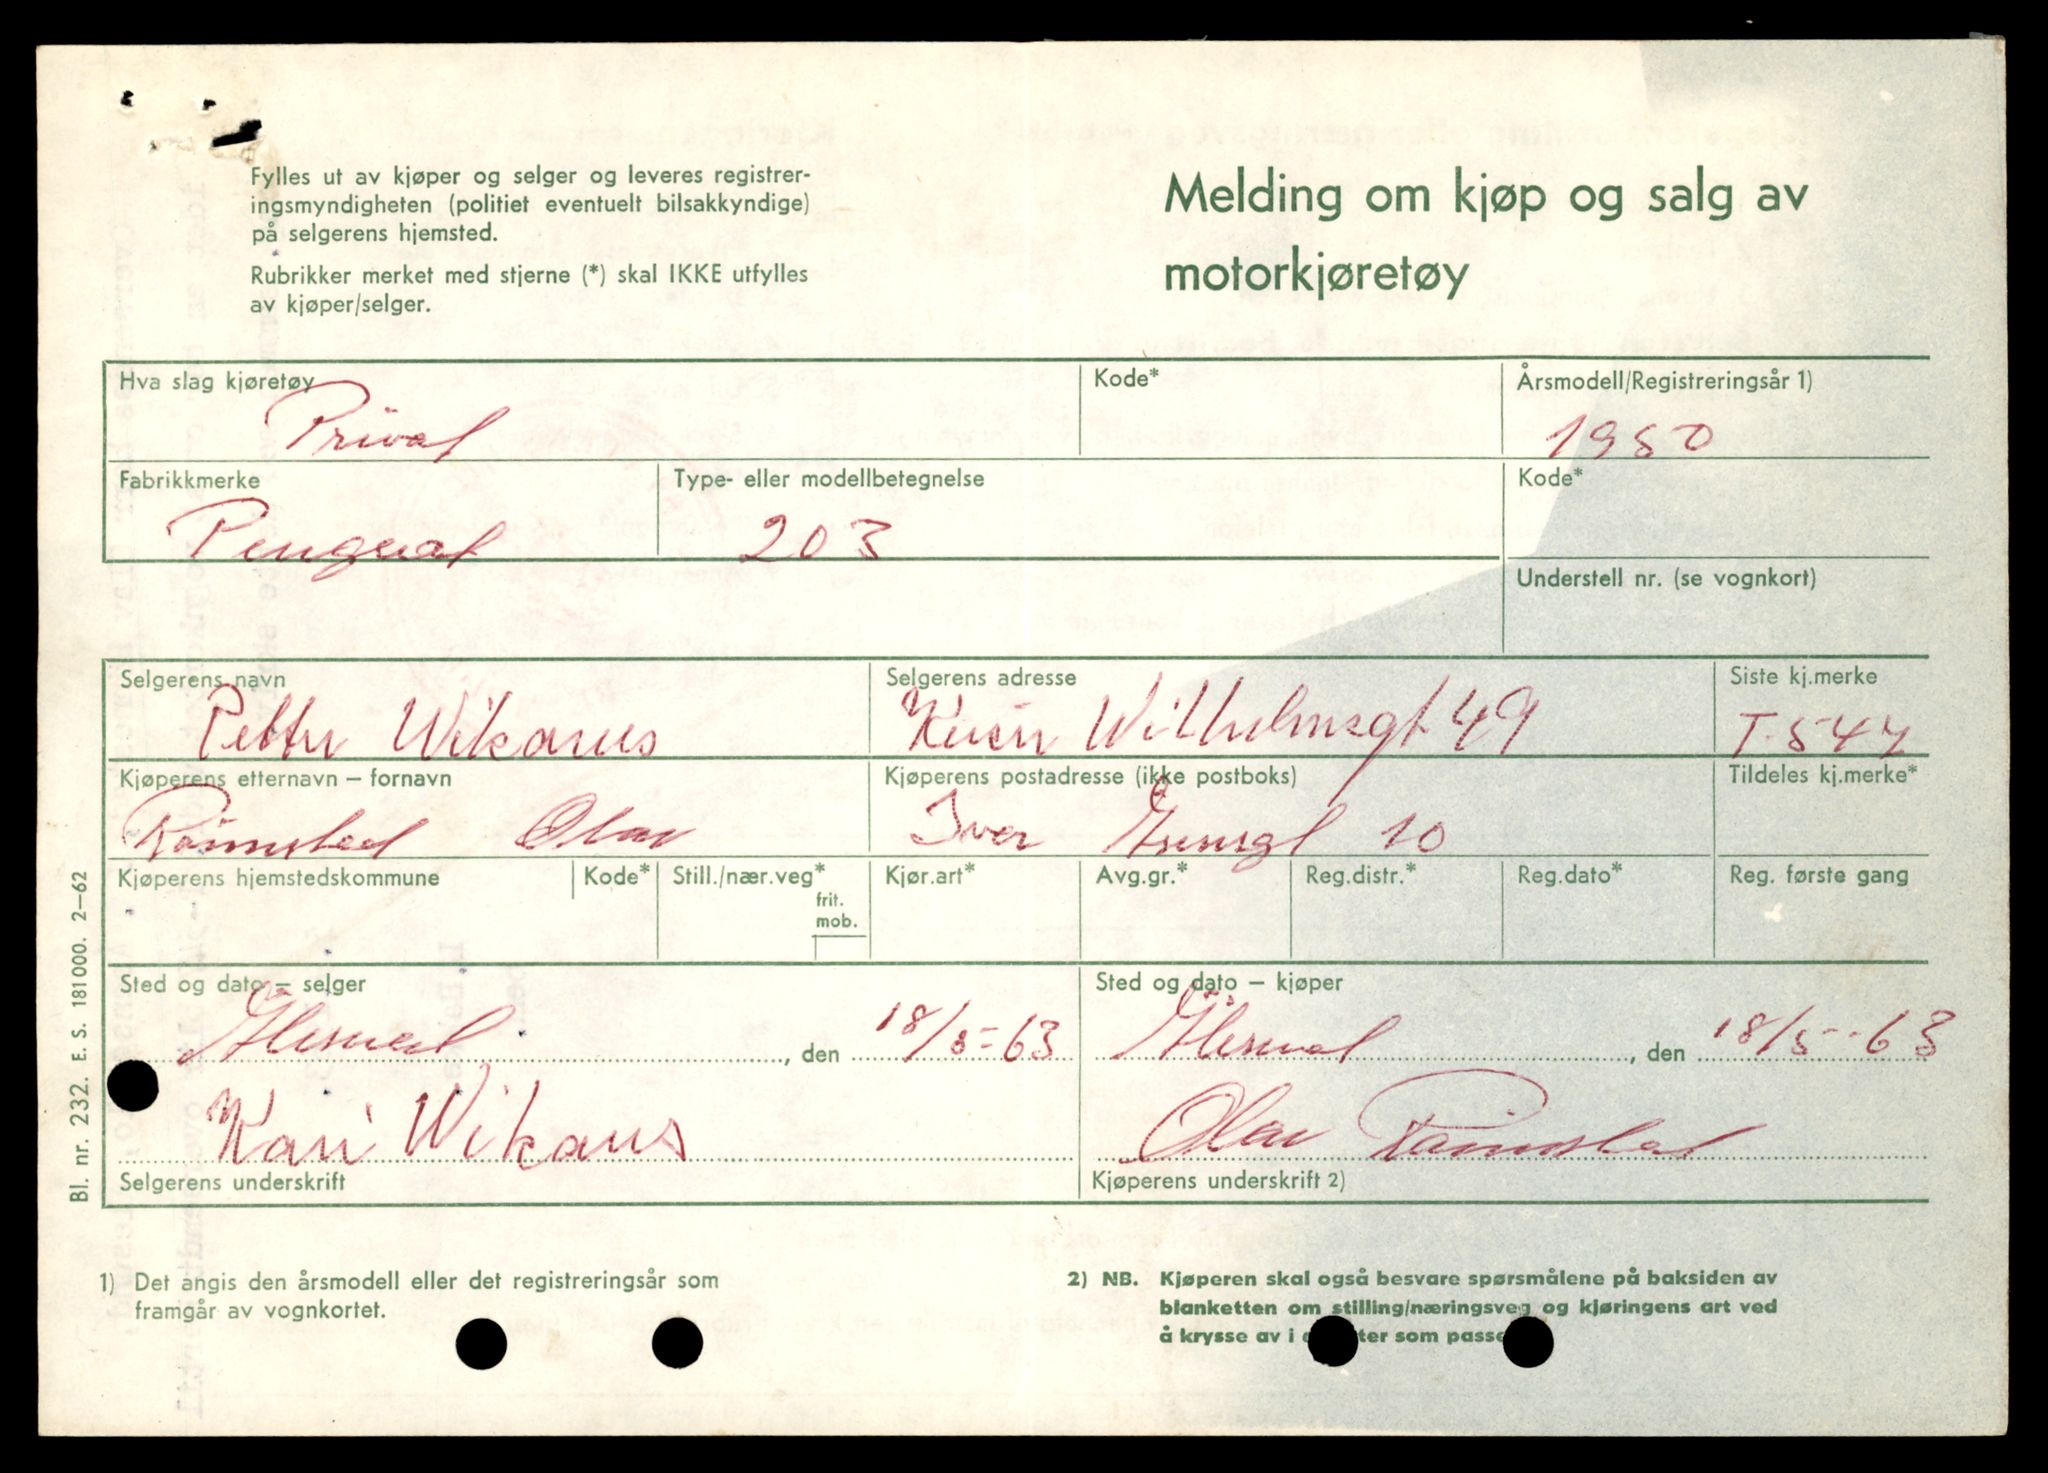 Fylles ut av kjøper og selger og leveres registrer-
ingsmyndigheten (politiet eventuelt bilsakkyndige)
på selgerens hjemsted.
Rubrikker merket med stjerne (*) skal IKKE utfylles
av kjøper/selger.
Melding om kjøp og salg av
motorkjøretøy
Hva slag kjøretøy
Privat
Kode*
Årsmodell/Registreringsår 1)
1950
Fabrikkmerke
Type- eller modellbetegnelse
203
Kode*
Understell nr. (se vognkort)
Selgerens navn
Petter Wikanus
Selgerens adresse
Wilhelmsgt 49
Siste kj.merke
T-544
Kjøperens etternavn – fornavn
Olav
Kjøperens postadresse (ikke postboks)
Iver 10
Tildeles kj.merke*
Kjøperens hjemstedskommune
Kode*
Still./nær.veg*
frit.
mob.
Kjør.art*
Avg.gr.*
Reg.distr.*
Reg.dato*
Reg. første gang
Sted og dato – selger
Ålesund, den 18/5-63
Sted og dato – kjøper
Ålesund, den 18/5-63
Kari Wikanus
Selgerens underskrift
Olav
Kjøperens underskrift 2)
Bl. nr. 232. E. S. 181000. 2–62
1) Det angis den årsmodell eller det registreringsår som
framgår av vognkortet.
2) NB. Kjøperen skal også besvare spørsmålene på baksiden av
blanketten om stilling/næringsveg og kjøringens art ved
å krysse av i ter som passe